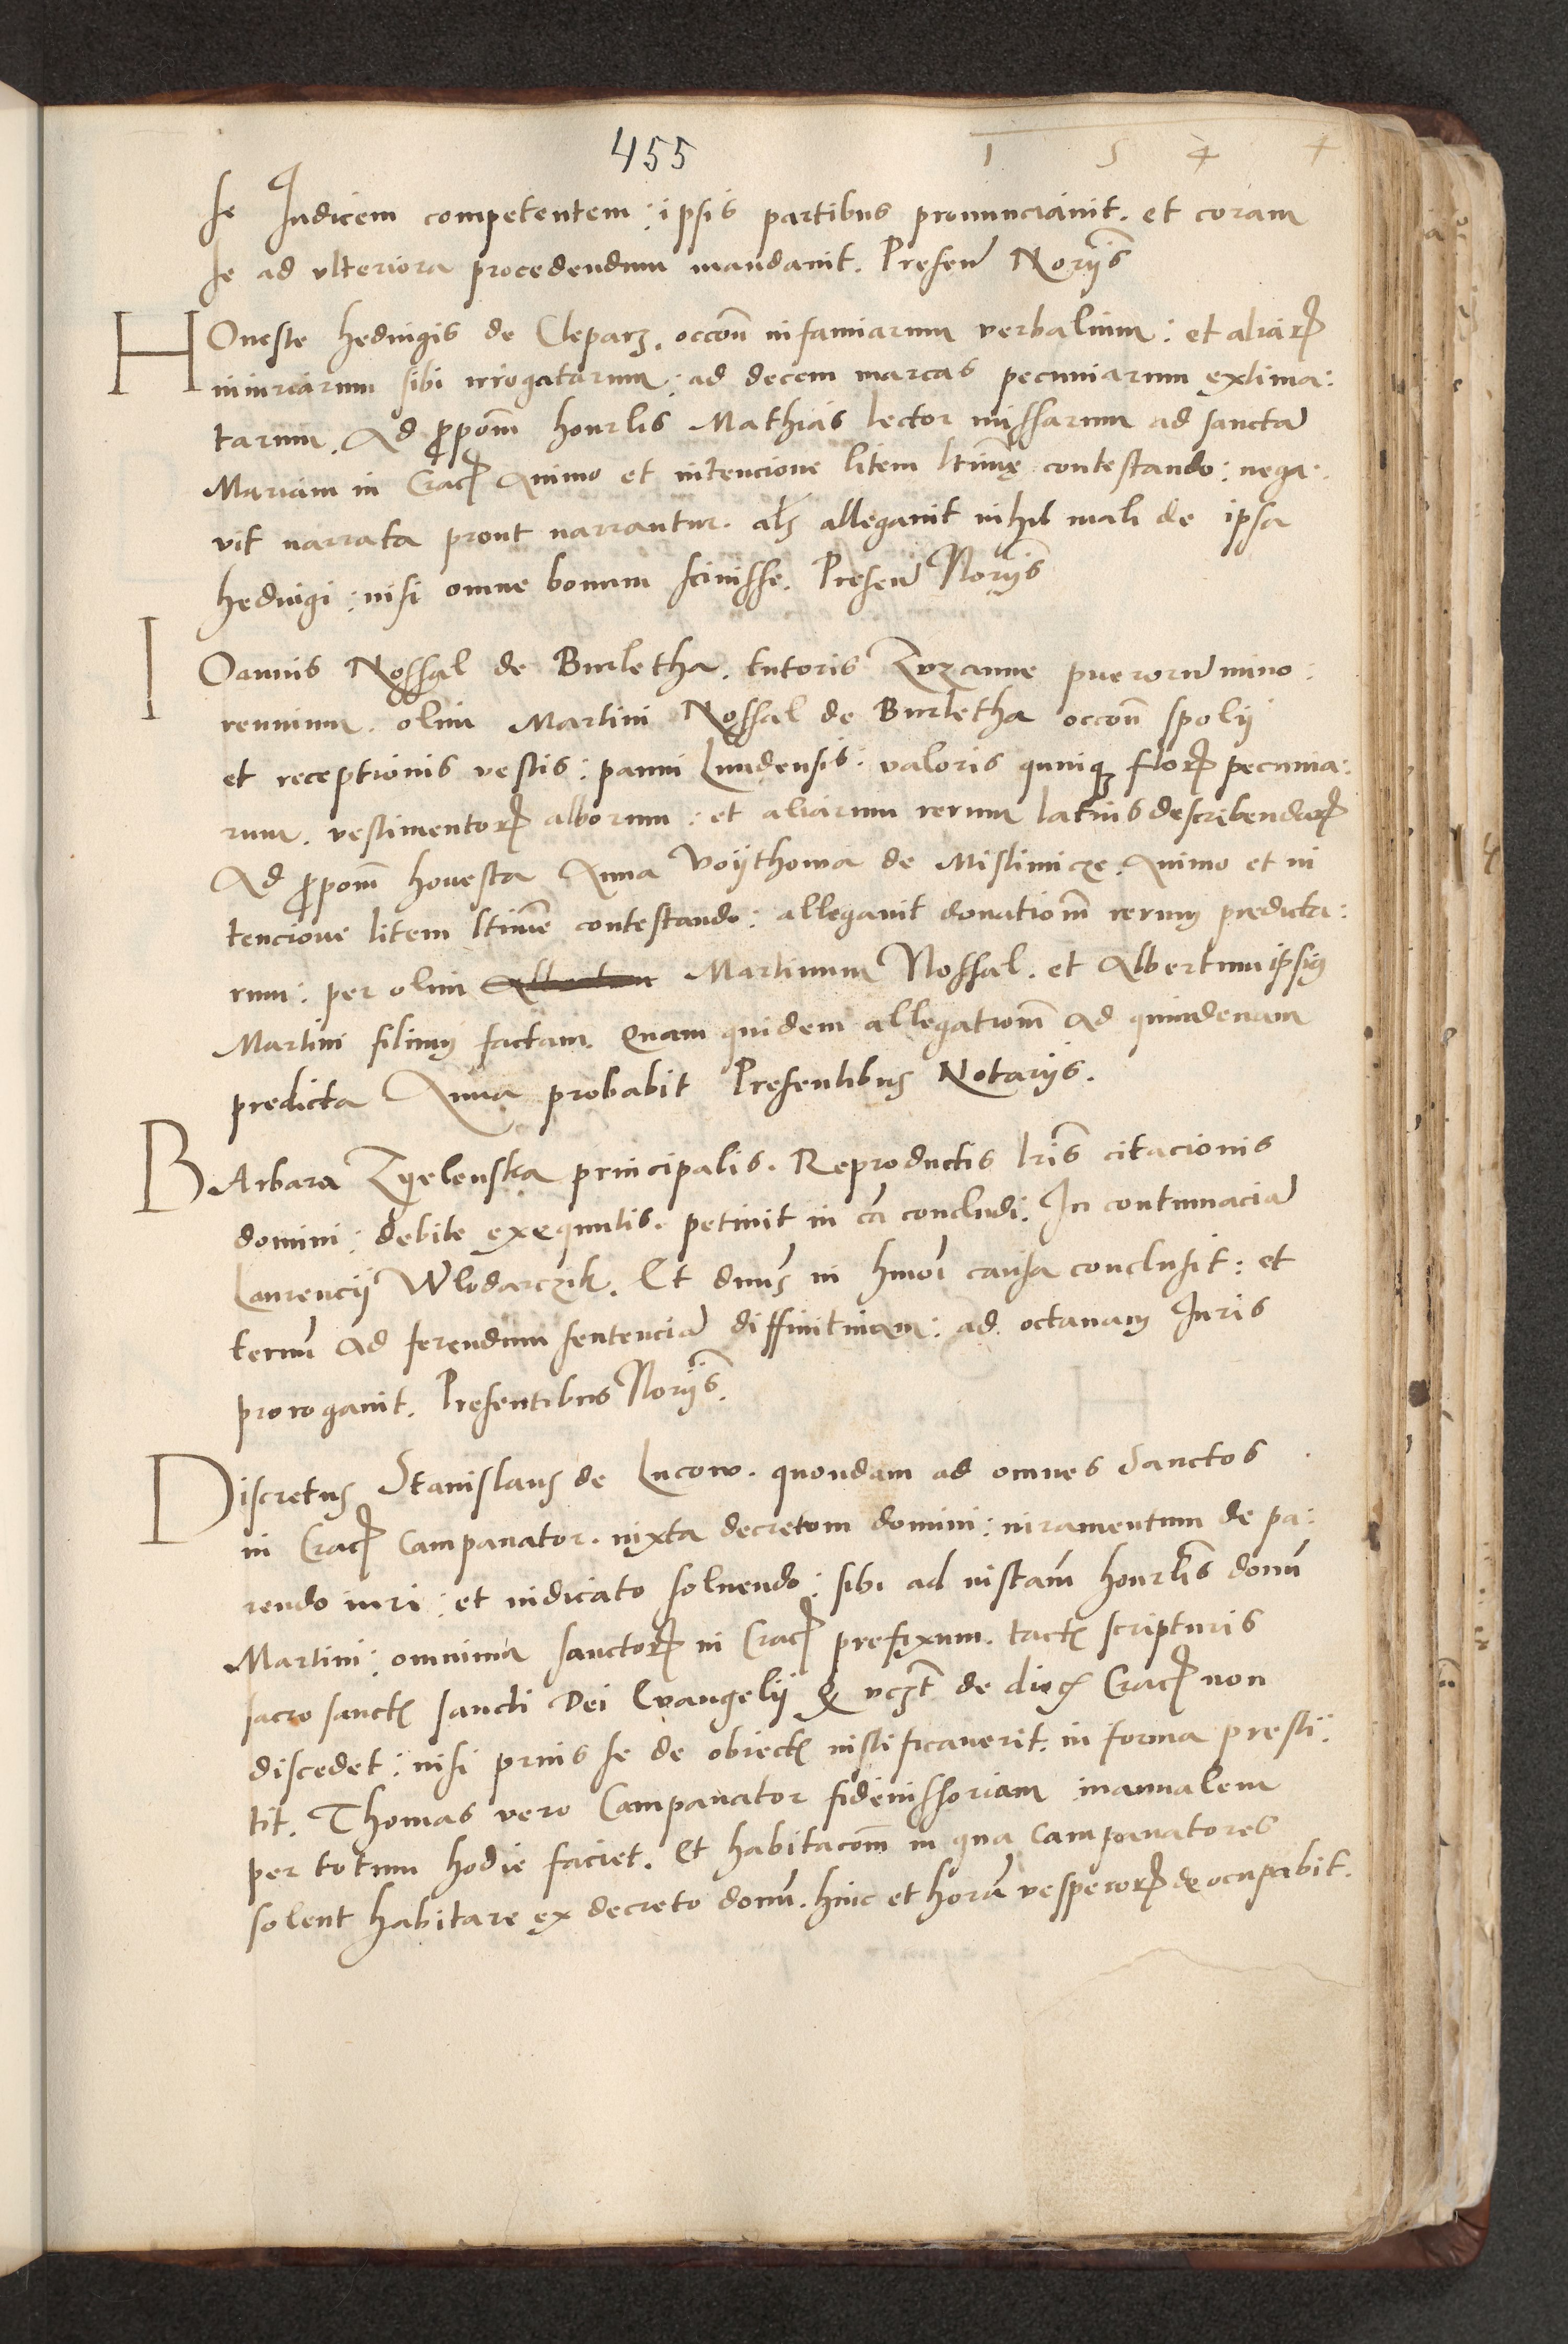 455
1 5 4 4
se Iudicem competentem : ipsis partibus pronunciauit . et coram
se ad vlteriora procedendum mandauit . Presen̄ Norijs̄
HOneste hedwigis de Cleparz . occoñ infamiarum verbalium : et aliarꝝ
iniuriarum sibi irrogatarum : ad decem marcas pecuniarum extima:
tarum . Ad ꝓpom̄ honrlis Mathias lector missarum ad sanctā
Mariam in Cracꝫ Animo et intencione litem ltimę contestando : nega:
vit narrata prout narrantur . als̄ allegauit nihil mali de ipsa
hedwigi : nisi omne bonum sciuisse . Presen̄ Norijs̄
IOannis Nossal de Burletha . tutoris Zuzanne puerorū mino:
rennium . olim Martini Nossal de Burletha occoñ spolij
et receptionis vestis : panni Lundensis : valoris quinqꝫ florꝝ pecunia:
rum . vestimentorꝝ alborum : et aliarum rerum latius describendarꝝ
Ad ꝓpom̄ honesta Anna Voijthowa de Mistimicze . Animo et in
tencione litem ltimē contestando : allegauit donatiom̄ rerum predicta:
rum : per olim Martinum Nossal . et Albertum ipsius
Martini filium factam . Quam quidem allegatiom̄ ad quindenam
predicta Anna probabit Presentibus Notarijs .
BArbara Zyelenska principalis . Reproductis lris̄ citacionis
domini : debite exequutis . petiuit in cā concludi . In contumaciā
Laurencij Wlodarczik . Et dnus̄ in hmoi causa conclusit : et
termū ad ferendum sentenciā diffinitiuam : ad octauam Iuris
prorogauit . Presentibus Norijs̄ .
DIscretus Stanislaus de Lucow . quondam ad omnes Sanctos
in Cracꝫ Campanator . iuxta decretum domini : iuramentum de pa:
rendo iuri : et iudicato soluendo : sibi ad instam̄ honrlis̄ domī
Martini : omnium sanctorꝝ in Cracꝫ prefixum . tactꝭ scripturis
sacro sanctꝭ sancti Dei Euangelij Q vczt̄ de diocꝫ Cracꝫ non
discedet : nisi prius se de obiectꝭ iustificauerit . in forma presti:
tit . Thomas vero Campanator fideiussoriam manualem
per totum hodie faciet . Et habitacom̄ in qua Campanatores
solent habitare ex decreto domī . hinc et horā vesperorꝝ deocupabit .